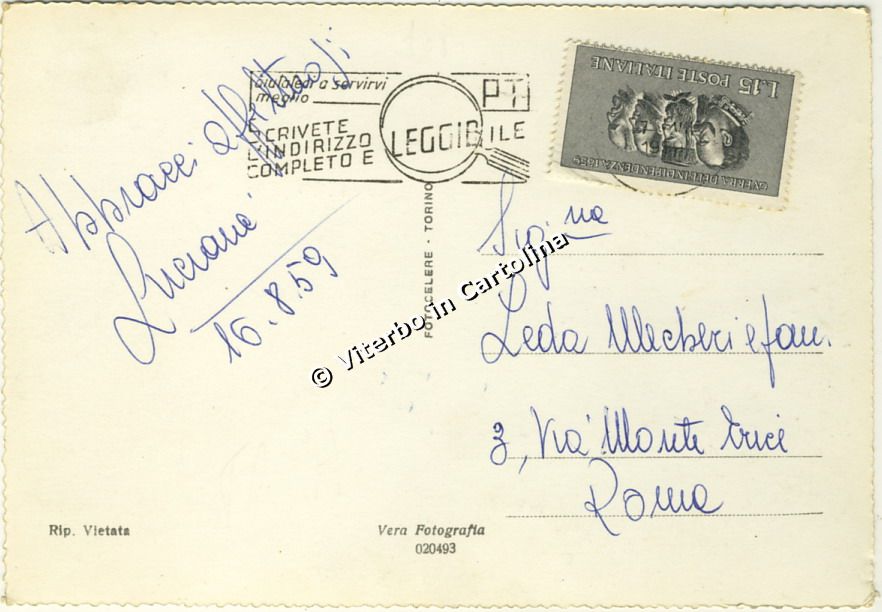 Abbracci affettuosi
Luciana
16.8.59
aiutateci a servirvi
meglio
SCRIVETE
L'INDIRIZZO
COMPLETO E LEGGIBILE
PT
L.15 POSTE ITALIANE
GUERRA DELL'INDIPENDENZA 1859
FOTOCELERE - TORINO
© Viterbo in Cartolina
Sig.na
Leda Mecheri e fam.
3, Via Monte Erice
Roma
Rip. Vietata
Vera Fotografia
020493